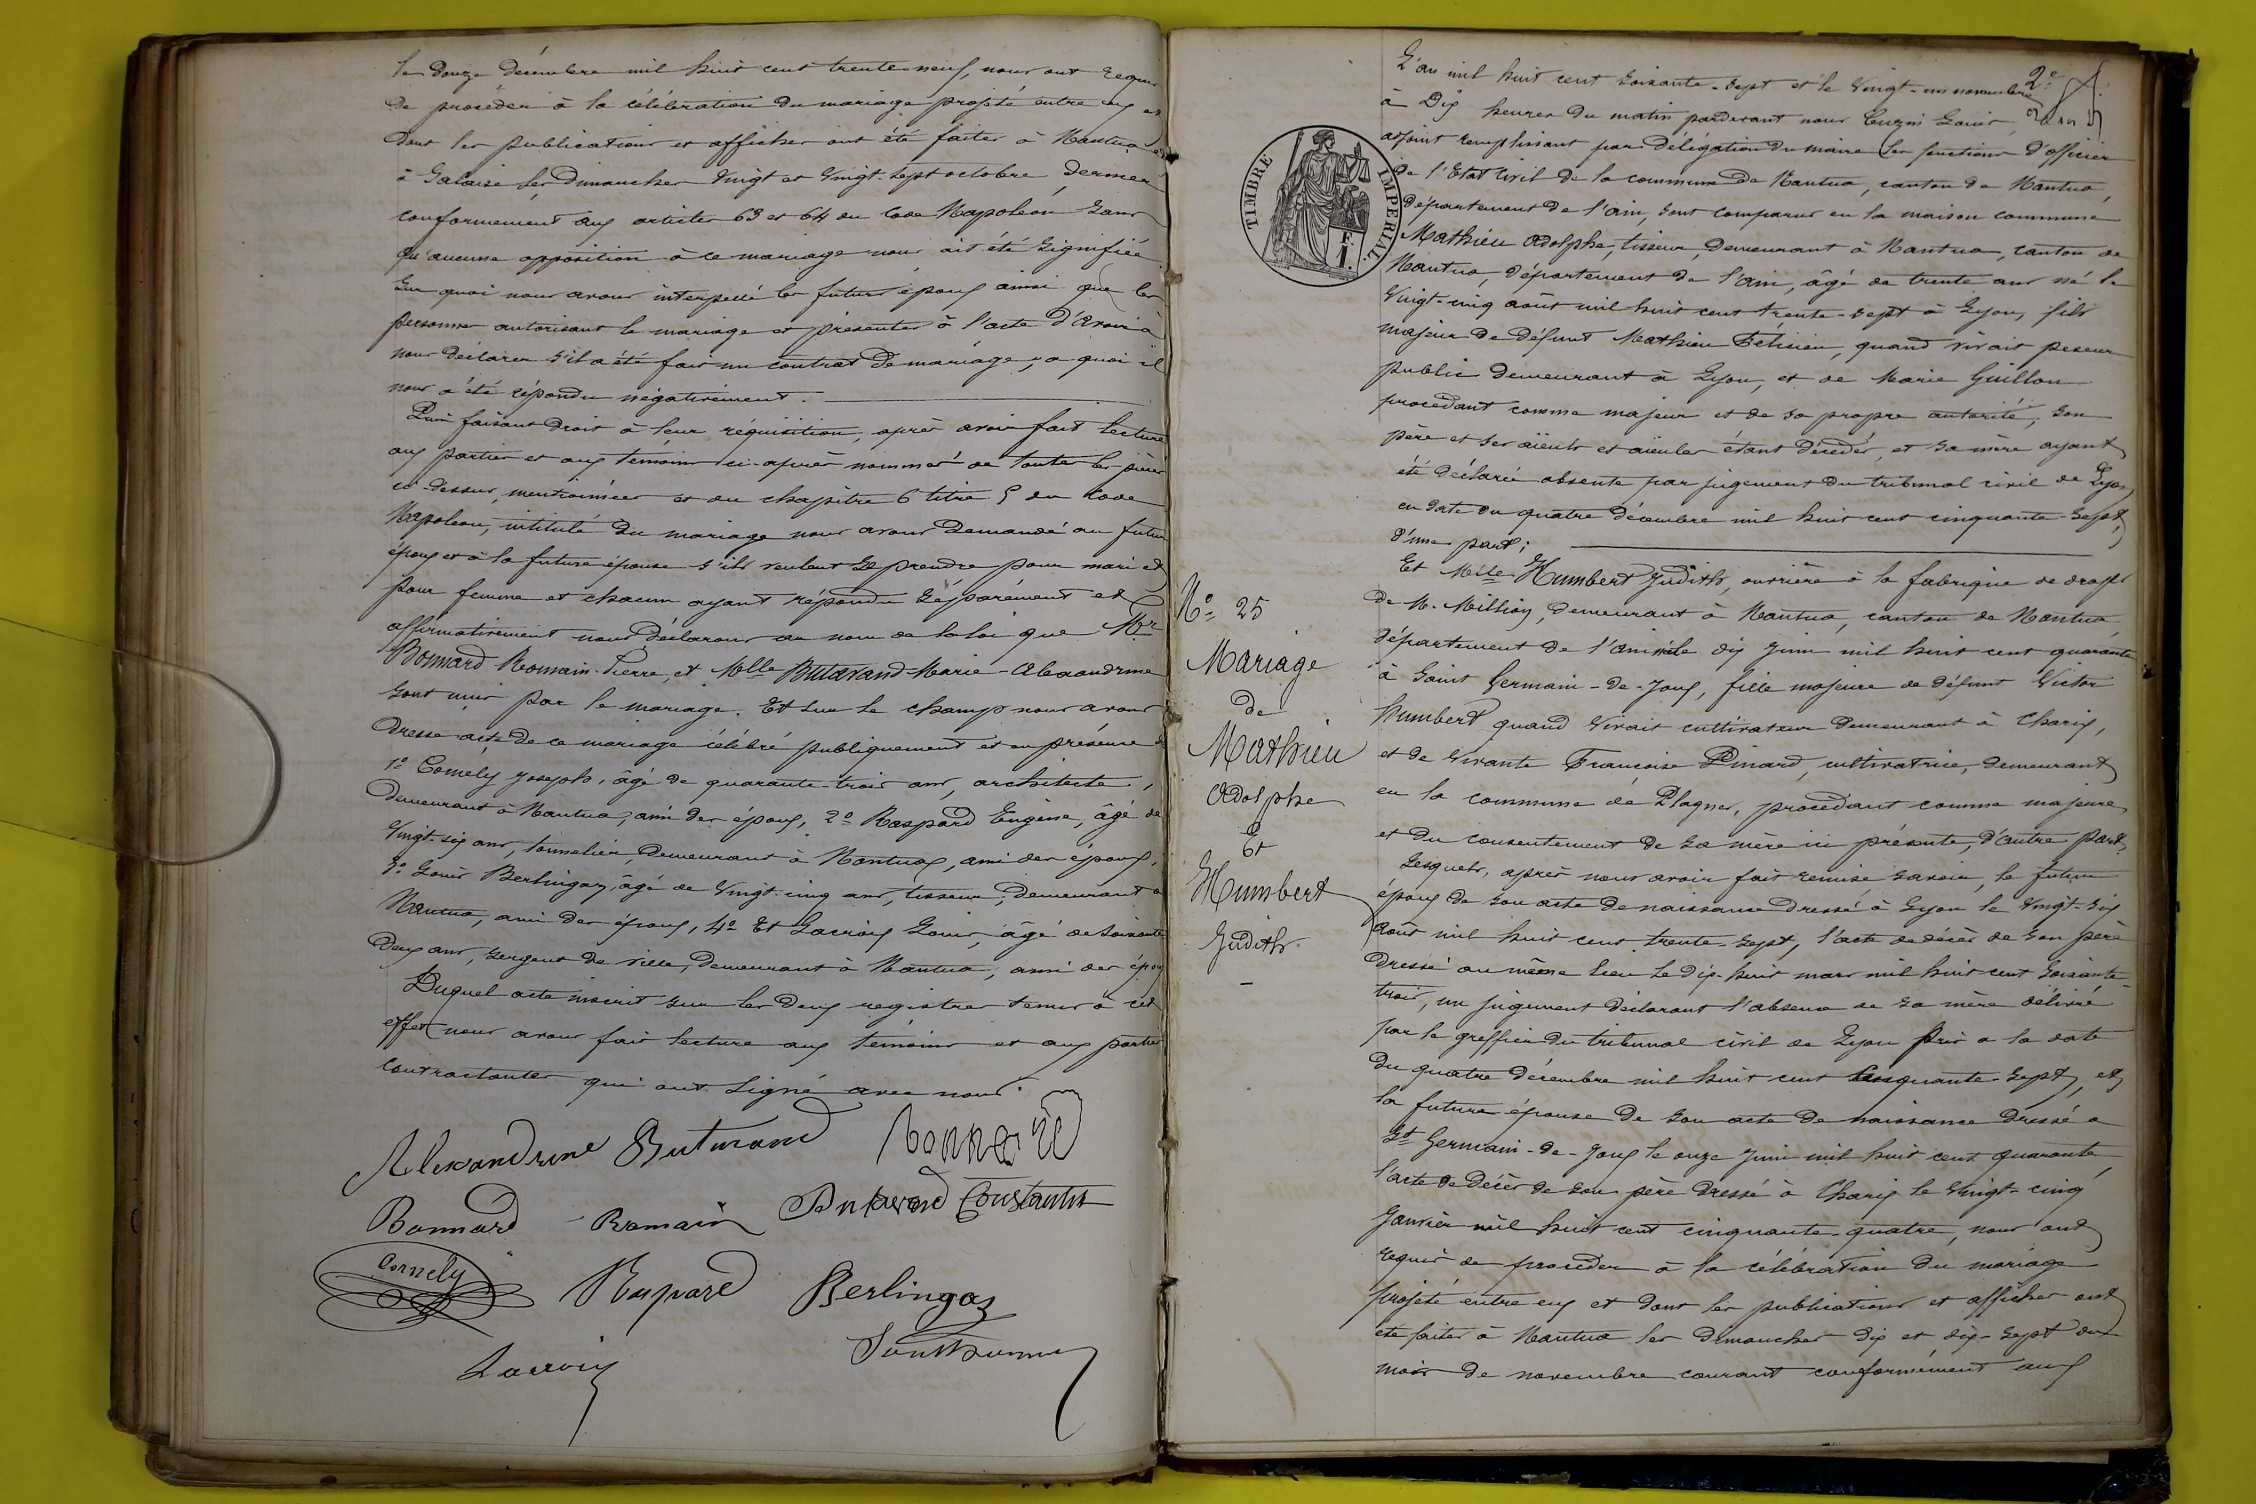 le douze décembre mil huit cent trente-neuf, nous ont requis
de procéder à la célébration du mariage projeté entre eux et
dont les publications et affiches ont été faites à Nantua et
à les Dimanches vingt et vingt-sept octobre dernier
conformément aux articles 63 et 64 du Code Napoléon sans
qu'aucune opposition à ce mariage nous ait été signifiée.
Sur quoi nous avons interpellé les futurs époux ainsi que les
personnes autorisant le mariage et présentes à l'acte d'avoir à
nous déclarer s'il a été fait un contrat de mariage, a quoi il
nous a été répondu négativement.
Puis faisant droit à leur réquisition, après avoir fait lecture
aux parties et aux témoins ci-après nommés de toutes les pièces
ci-dessus mentionnées et du chapitre 6 titre 5 du Code
Napoléon, intitulé du mariage nous avons demandé au futur
époux et à la future épouse s'ils veulent se prendre pour mari et
pour femme et chacun ayant répondu séparément et
affirmativement nous déclarons au nom de la loi que Mr
Bonnard Romain-Pierre, et Melle Butavand Marie-Alexandrine
sont unis par le mariage. Et sur le champ nous avons
dressé acte de ce mariage célébré publiquement et en présence de
1o Cornély Joseph, âgé de quarante-trois ans, architecte,
demeurant à Nantua, ami des époux, 2o Raspard Eugène, âgé de
vingt-six ans, tonnelier, demeurant à Nantua, ami des époux,
3o Louis Berlingoz, âgé de vingt-cinq ans, tisseur, demeurant à
Nantua, ami des époux, 4o Et Lacroix Louis, âgé de soixante
deux ans, sergent de ville, demeurant à Nantua, ami des époux
Duquel acte inscrit sur les deux registres tenus à cet
effet nous avons fait lecture aux témoins et aux parties
contractantes qui ont signé avec nous.
Alexandrine Butavand Bonnard
Bonnard Romain Butavand Constantin
Cornely Raspard Berlingoz
Lacroix
2e
L'an mil huit cent soixante-sept et le vingt-un novembre
à Dix heures du matin pardevant nous Louis
adjoint remplissant par délégation du maire les fonctions d'officier
de l'Etat Civil de la commune de Nantua, canton de Nantua,
département de l'ain, sont comparus en la maison commune
TIMBRE IMPERIAL
F.
1.
Mathieu Adolphe, tisseur, demeurant à Nantua, canton de
Nantua, département de l'ain, âgé de trente ans né le
vingt-cinq août mil huit cent trente-sept à Lyon, fils
majeur de défunt Mathieu Félicien, quand vivait peseur
public demeurant à Lyon, et de Marie Guillon
procédant comme majeur et de sa propre autorité, son
père et ses aïeuls et aïeules étant décédés, et sa mère ayant
été déclarée absente par jugement du tribunal civil de Lyon,
en date du quatre décembre mil huit cent cinquante-sept,
d'une part;
Et Melle Humbert Judith, ouvrière à la fabrique de draps
de M. Million, demeurant à Nantua, canton de Nantua
département de l'ain née le dix juin mil huit cent quarante
à Saint Germain-de-Joux, fille majeure de défunt Victor
Humbert quand vivait cultivateur demeurant à Charix,
et de vivante Françoise Pinard, cultivatrice, demeurant
en la commune de Plagnes, procédant comme majeure
et du consentement de sa mère ici présente, d'autre part,
Lesquels, après nous avoir fait remise savoir, le futur
époux de son acte de naissance dressé à Lyon le vingt-six
août mil huit cent trente-sept, l'acte de décès de son père
dressé au même lieu le dix-huit mars mil huit cent soixante-
trois, un jugement déclarant l'absence de sa mère délivré
par le greffier du tribunal civil de Lyon à la date
du quatre décembre mil huit cent cinquante-sept, et
la future épouse de son acte de naissance dressé à
St Germain-de-Joux le onze juin mil huit cent quarante
l'acte de décès de son père dressé à Charix le vingt-cinq
janvier mil huit cent cinquante-quatre, nous ont
requis de procéder à la célébration du mariage
projeté entre eux et dont les publications et affiches ont
été faites à Nantua les dimanches dix et dix-sept du
mois de novembre courant conformément aux
No 25
Mariage
de
Mathieu
Adolphe
Et
Humbert
Judith.